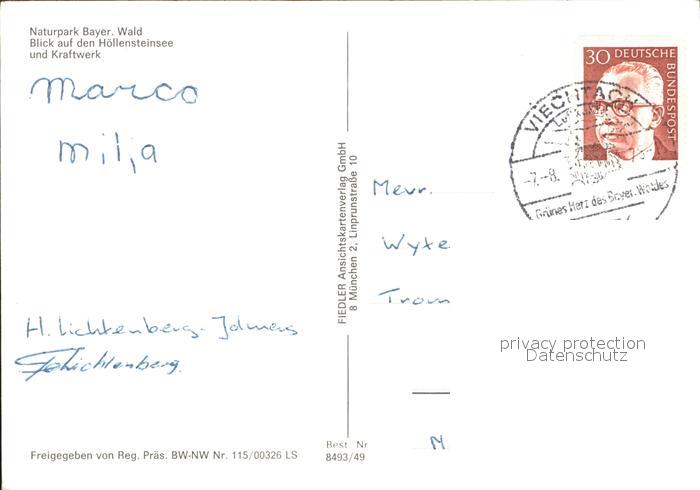 Naturpark Bayer. Wald
Blick auf den Höllensteinsee
und Kraftwerk
Marco
milja
H. Lichtenberg-
Lichtenberg.
Freigegeben von Reg. Präs. BW-NW Nr. 115/00326 LS
FIEDLER Ansichtskartenverlag GmbH
8 München 2, Linprunstraße 10
Best Nr
8493/49
30 DEUTSCHE
BUNDESPOST
VIECHTACH
-7.-8.
Grünes Herz des Bayer. Waldes
Mevr.
Wyte
Trom
privacy protection
Datenschutz
M